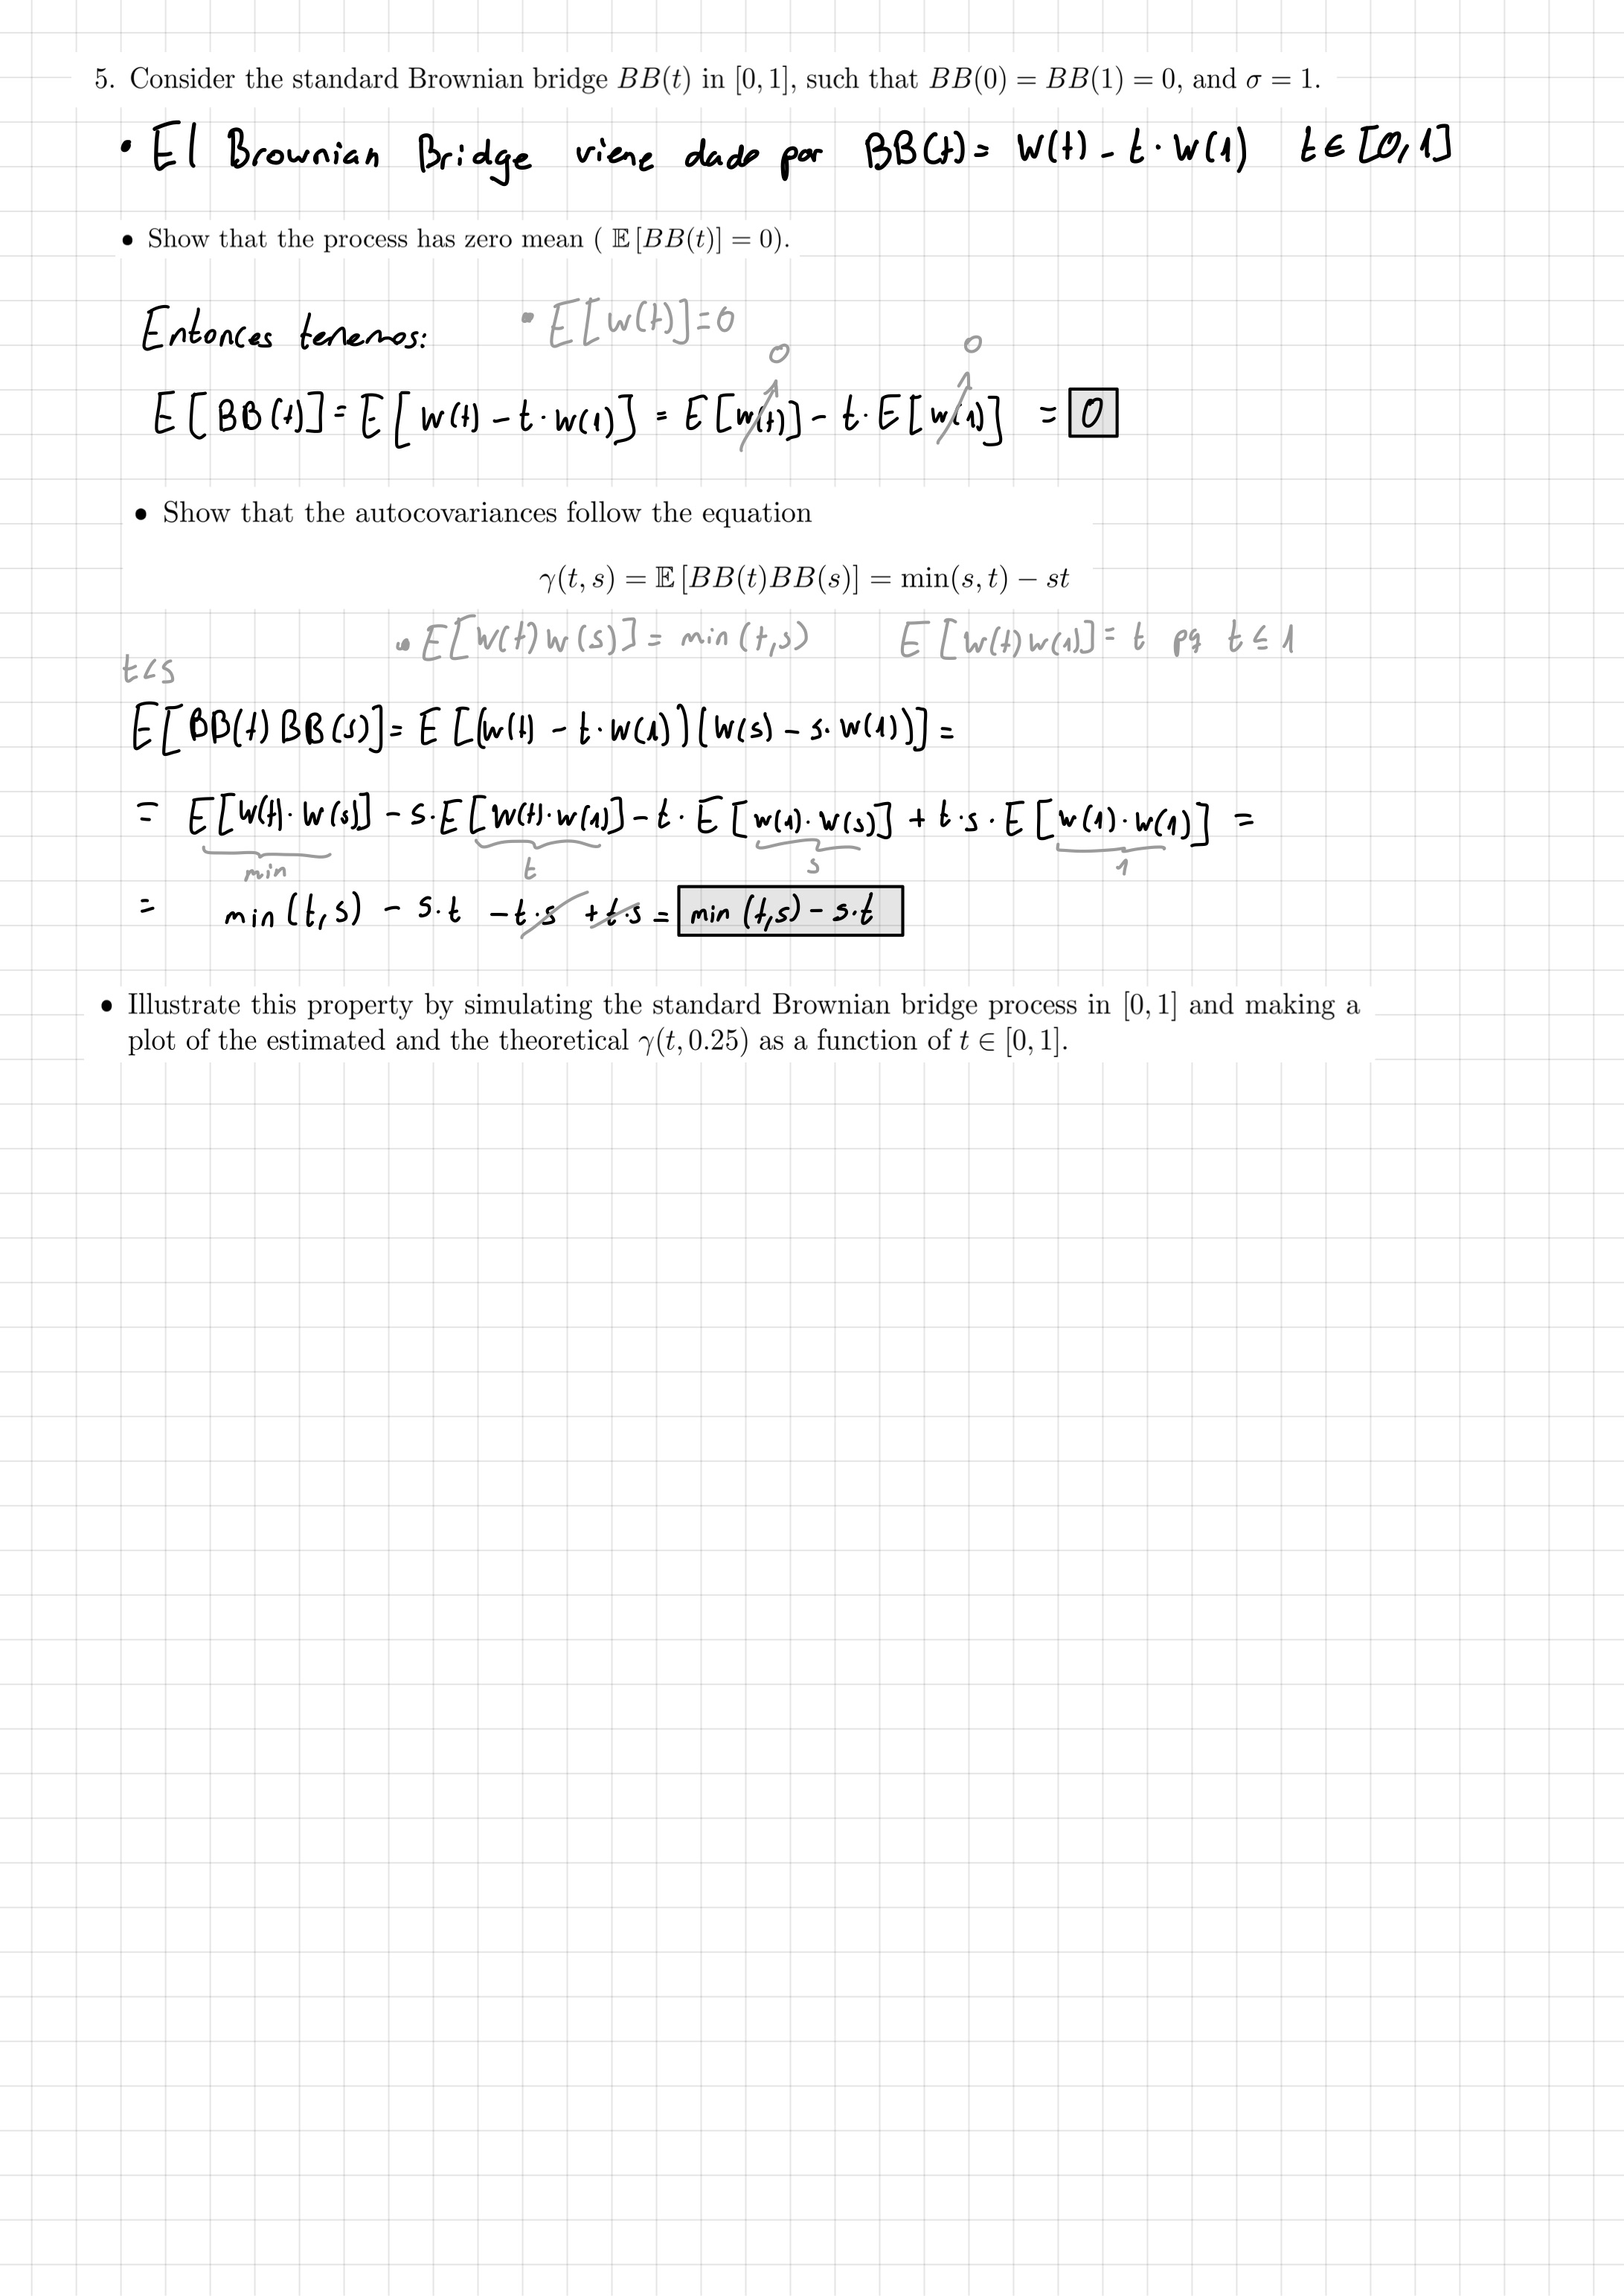 5. Consider the standard Brownian bridge BB(t) in [0, 1], such that BB(0) = BB(1) = 0, and σ = 1.
• El Brownian Bridge viene dado por BB(t) = W(t) - t · W(1) t ∈ [0,1]
• Show that the process has zero mean ( 𝔼 [BB(t)] = 0).
Entonces tenemos: • E[W(t)] = 0
0 0
E[BB(t)] = E[W(t) - t · W(1)] = E[W(t)] - t · E[W(1)] = 0
• Show that the autocovariances follow the equation
γ(t, s) = 𝔼 [BB(t)BB(s)] = min(s, t) − st
• E[W(t)W(s)] = min(t,s) E[W(t)W(1)] = t pq t ≤ 1
t<s
E[BB(t)BB(s)] = E[(W(t) - t · W(1))(W(s) - s · W(1))] =
= E[W(t) · W(s)] - s · E[W(t) · W(1)] - t · E[W(1) · W(s)] + t · s · E[W(1) · W(1)] =
min t s 1
= min(t,s) - s · t - t · s + t · s = min(t,s) - s · t
• Illustrate this property by simulating the standard Brownian bridge process in [0, 1] and making a
plot of the estimated and the theoretical γ(t, 0.25) as a function of t ∈ [0, 1].